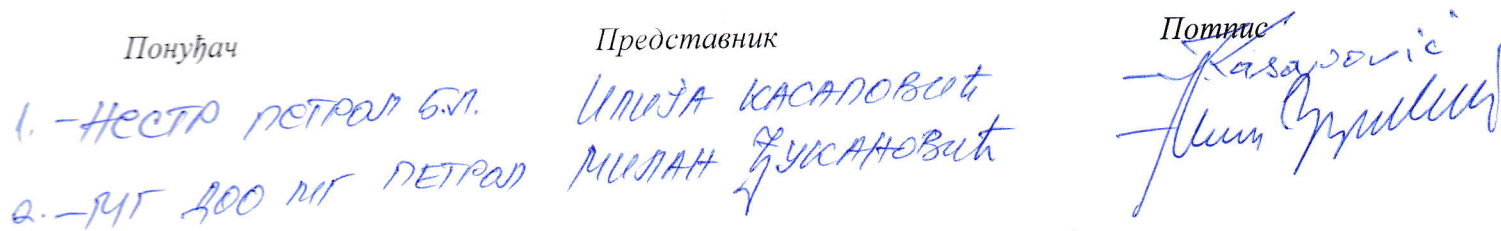 Понуђач Представник Потпис
1. - НЕСТР ПЕТРОЛ Б.Л. ИЛИЈА КАСАПОВИЋ Kasapović
2. - МГ ДОО МГ ПЕТРОЛ МИЛАН ЂУКАНОВИЋ